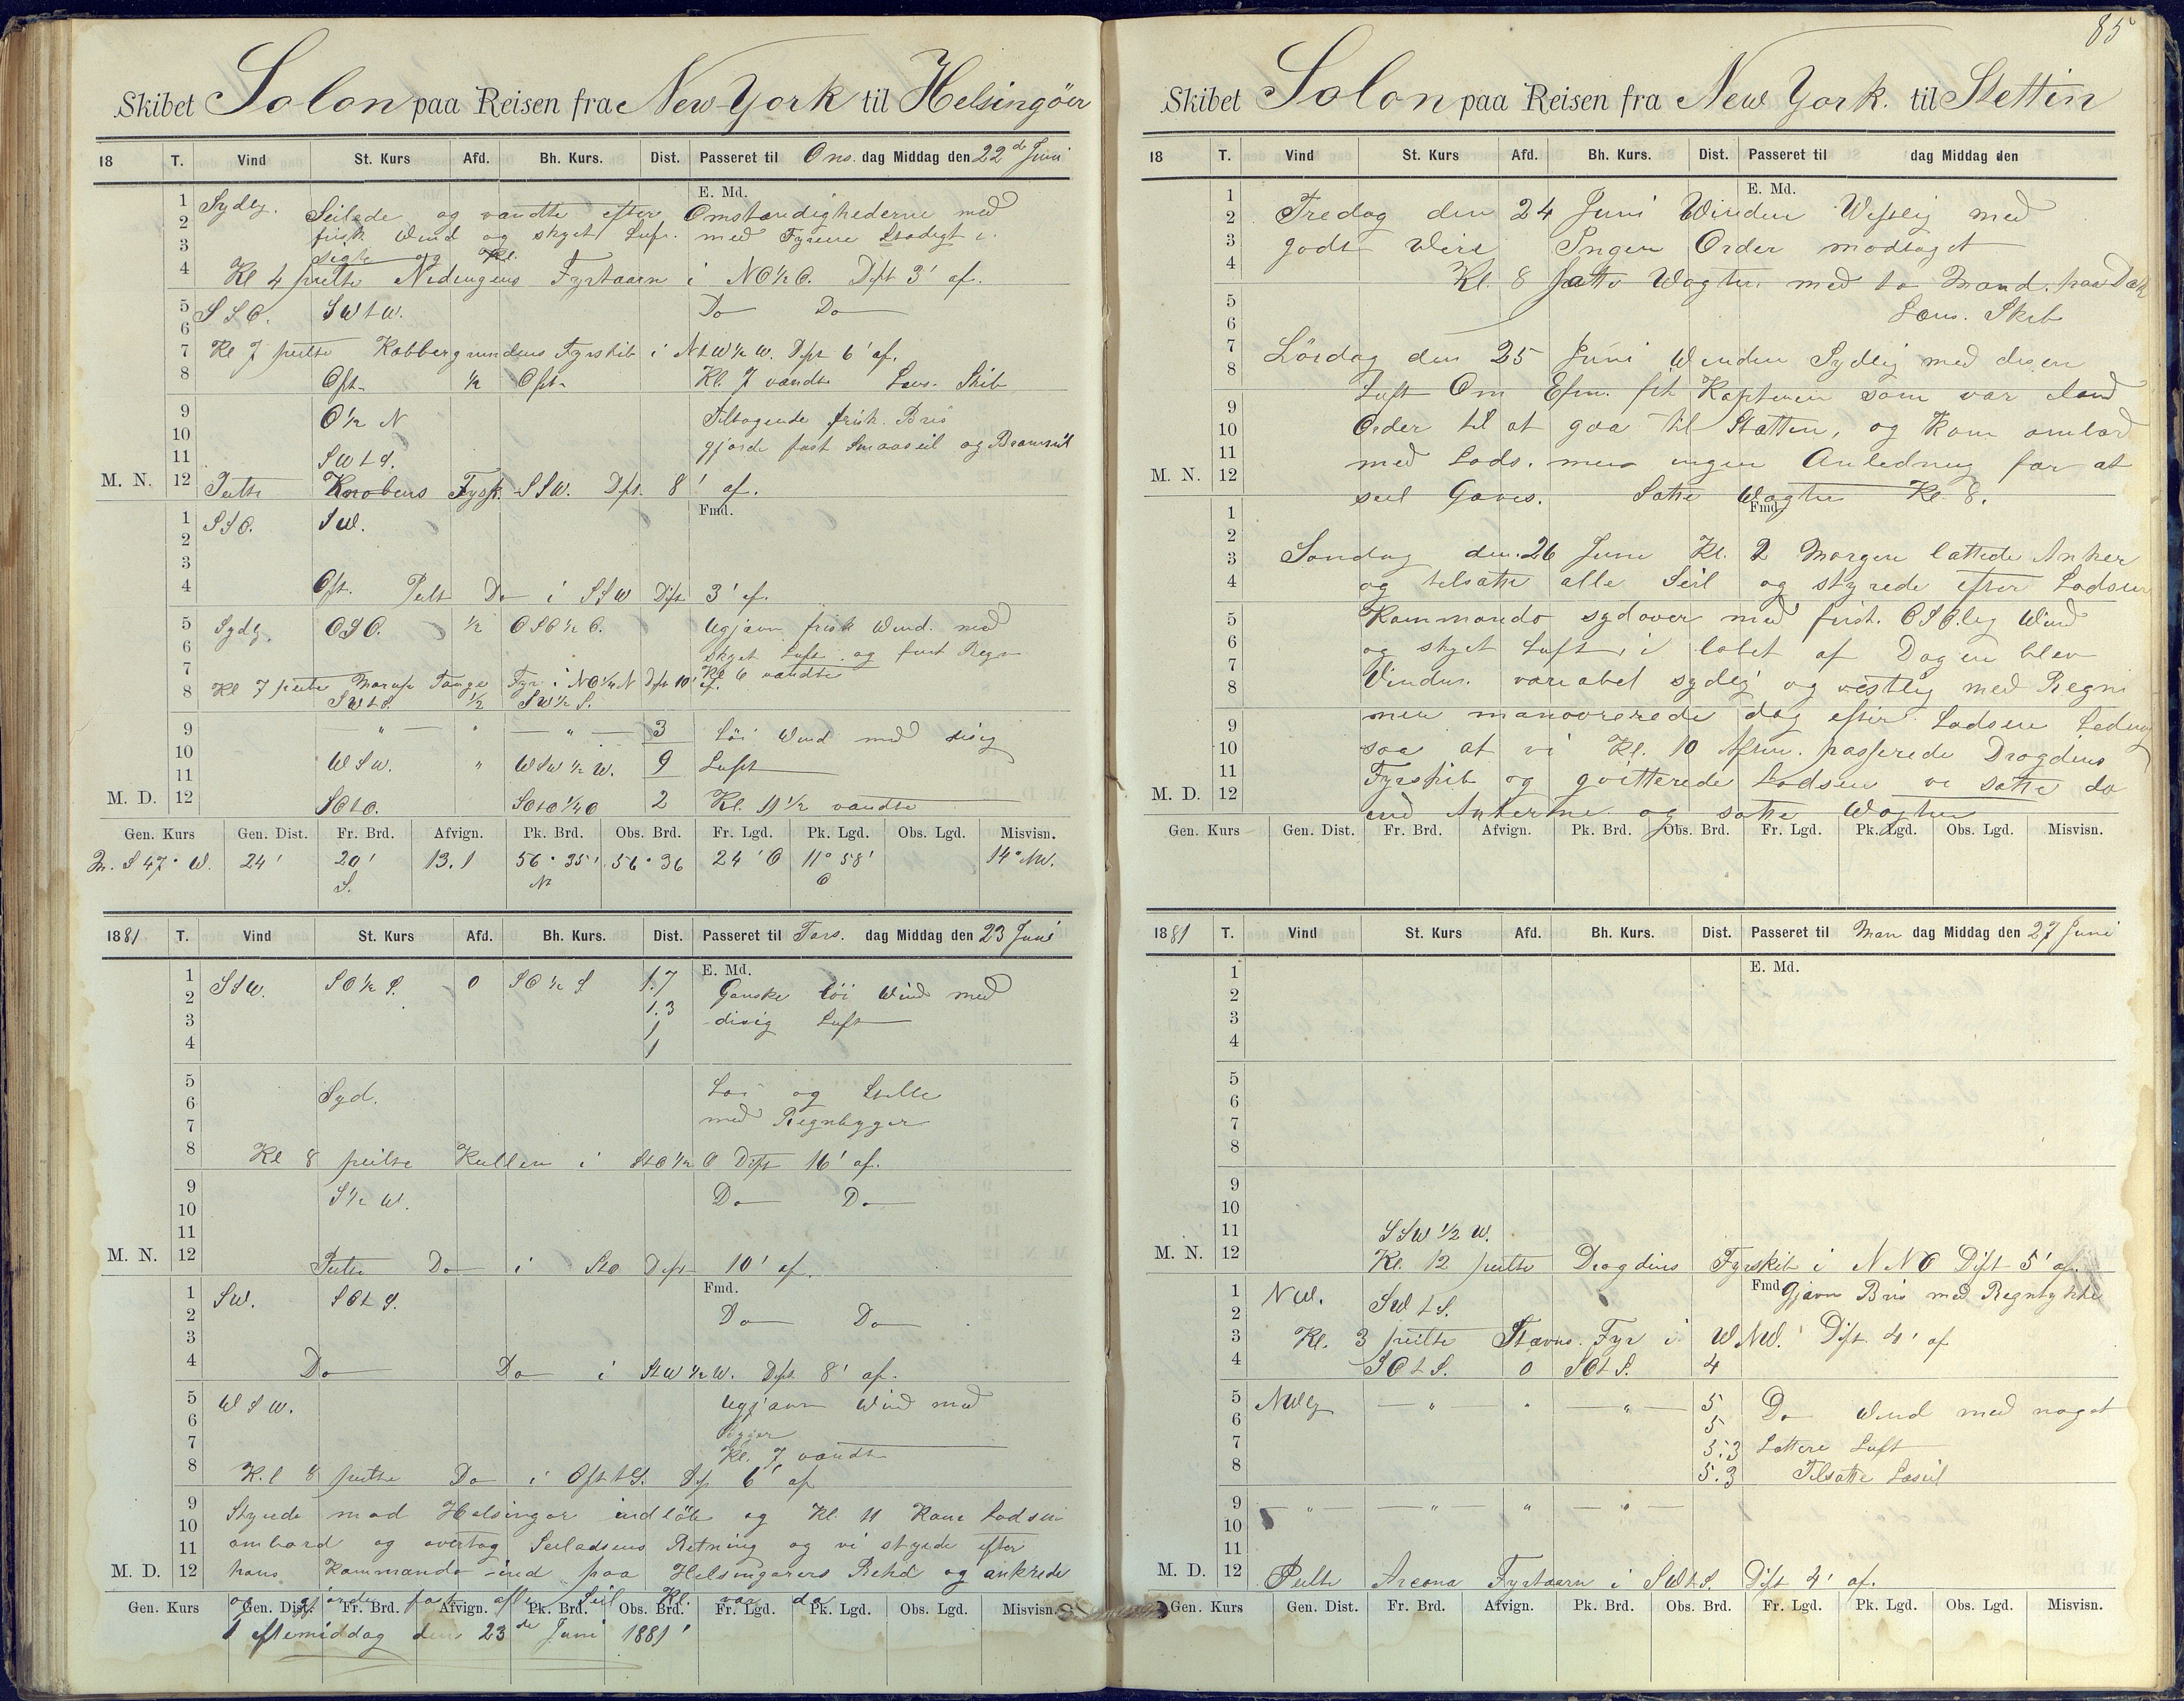 Skibet Solon paa Reisen fra New York til Helsingöer
18 T. Vind St. Kurs Afd. Bh. Kurs. Dist. Passeret til Ons. dag Middag den 22de Juni
E. Md.
1 Sydlg. Seilede og vandte efter Omstændighederne med
2 frisk Wind og skyet Luft. med Fyrene Stadigt i
3 Sigte og Kl.
4 Kl 4 peilte Nidingens Fyrtaarn i NO½O. Dist 3' af.
5 SSO. SWtW. Do Do
6
7 Kl 7 peilte Kobbergrundens Fyrskib i NtW½W. Dist 6' af.
8 Ost ½ Ost Kl. 7 vandte Lens. Skib
9 O½N Tiltagende frisk. Bris
10 gjorde fast Smaaseil og Bramseil
11 SWtS.
M. N. 12 Peilte Knobens Fyrsk. SSW. Dist. 8' af.
Fmd.
1 SSO. SW.
2
3
4 Ost. Peilt Do i SSW Dist 3' af.
5 Sydlg. OSO. ½ OSO½O. Ugjævn frisk Wind. med
6 skyet Luft. og fint Regn
7 Kl 6 vandte
8 Kl 7 peilte Morups Tange Fyr i NO¼N Dist 10' af.
SWtS. ½ SW½S.
9 — „ — „ — „ — 3 Löi Wind med disig
10 WSW. „ WSW½W. 9 Luft
11
M. D. 12 SOtO. SOtO¼O 2 Kl. 11½ vandte
Gen. Kurs Gen. Dist. Fr. Brd. Afvign. Pk. Brd. Obs. Brd. Fr. Lgd. Pk. Lgd. Obs. Lgd. Misvisn.
M. S 47° W. 24' 20' S. 13.1 56° 35' N 56° 36 24' O 11° 58' O 14° NW.
1881 T. Vind St. Kurs Afd. Bh. Kurs. Dist. Passeret til Tors. dag Middag den 23 Juni
E. Md.
1 SSW. SO½S. 0 SO½S 1.7 Ganske löi Wind med
2 1.3
3 1 disig Luft
4 1
5 Löi og Stille
6 Syd.
7 med Regnbyger
8 Kl 8 peilte Kullen i StO½O Dist 16' af.
9 S½W. Do Do
10
11
M. N. 12 Peilte Do i StO Dist 10' af.
Fmd.
1 SW. SOtS.
2 Do Do
3
4 Do Do i StW½W. Dist. 8' af.
5 WSW. Ugjævn Wind med
6 Byger
7 Kl. 7 vandt
8 Kl 8 peilte Do i OsttS. Dist 6' af
9 Styrede mod Helsingør indlöb og Kl. 11 Kom Lodsen
10 ombord og overtog Seiladsens Retning og vi styrede efter
11
M. D. 12 hans Kommando ind paa Helsingørers Rehd og ankrede
og gjordes fast alle Seil Kl. var da
Gen. Kurs Gen. Dist. Fr. Brd. Afvign. Pk. Brd. Obs. Brd. Fr. Lgd. Pk. Lgd. Obs. Lgd. Misvisn.
1 eftemiddag den 23de Juni 1881'
85
Skibet Solon paa Reisen fra New York. til Stettin
18 T. Vind St. Kurs Afd. Bh. Kurs. Dist. Passeret til dag Middag den
E. Md.
1
2 Fredag den 24 Juni Winden Westlig med
3 godt Veir Ingen Order modtaget
4 Kl. 8 satte Vagten med to Mand. paa Dæk
5 Lens. Skib
6
7 Lördag den 25 Juni Winden Sydlig med disen
8 Luft Om Efm. fik Kapteinen som var iland
9 Order til at gaa til Stettin, og Kom ombord
10
11 med Lods. men ingen Anledning for at
M. N. 12 seil Gaves. Satte Wagten Kl 8.
Fmd.
1
2
3 Søndag den 26 Juni Kl. 2 Morgen lættede Anker
4 og tilsatte alle Seil og styrede efter Lodsens
5 Kommando sydover med frisk. OSO.lig Wind
6 og skyet Luft, i løbet af Dagen blev
7
8 Vinden. variabel sydlig og vestlig med Regn
9 men manøvrerede dog efter Lodsens Ledning
10 saa at vi Kl. 10 Aften. passerede Drogdens
11 Fyrskib og qvitterede Lodsen vi satte da
M. D. 12
ind Ankerne og satte Wagten
Gen. Kurs Gen. Dist. Fr. Brd. Afvign. Pk. Brd. Obs. Brd. Fr. Lgd. Pk. Lgd. Obs. Lgd. Misvisn.
1881 T. Vind St. Kurs Afd. Bh. Kurs. Dist. Passeret til Man dag Middag den 27 Juni
E. Md.
1
2
3
4
5
6
7
8
9
10
11 SSW½W.
M. N. 12 Kl. 12 peilte Drogdens Fyrskib i NNO Dist 5' af.
Fmd.
1 NW. SWtS. Gjævn Bris med Regntykke
2
3 Kl. 3 peilte Stævns. Fyr i WNW. Dist. 4' af
4 SOtS. 0 SOtS. 4
5 NWlg — „ — „ — „ — 5 Do Wind med noget
6 5
7 5.3 Lettere Luft
8 5.3 Tilsatte Læseil
9 — „ — — „ — „ — „ —
10
11
M. D. 12 Peilte Arcona Fyrtaarn i SWtS. Dist 4' af.
Gen. Kurs Gen. Dist. Fr. Brd. Afvign. Pk. Brd. Obs. Brd. Fr. Lgd. Pk. Lgd. Obs. Lgd. Misvisn.